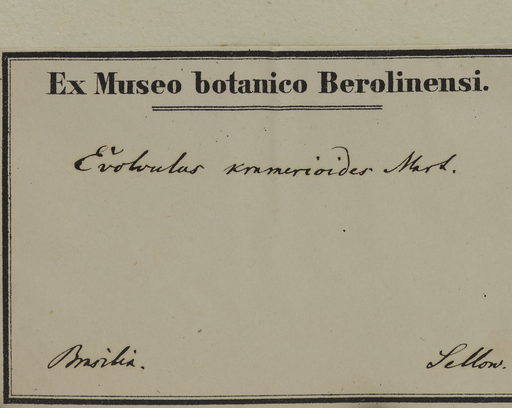 Ex Museo botanico Berolinensi.
Evolvulus kramerioides Mart.
Brasilia. Sellow.